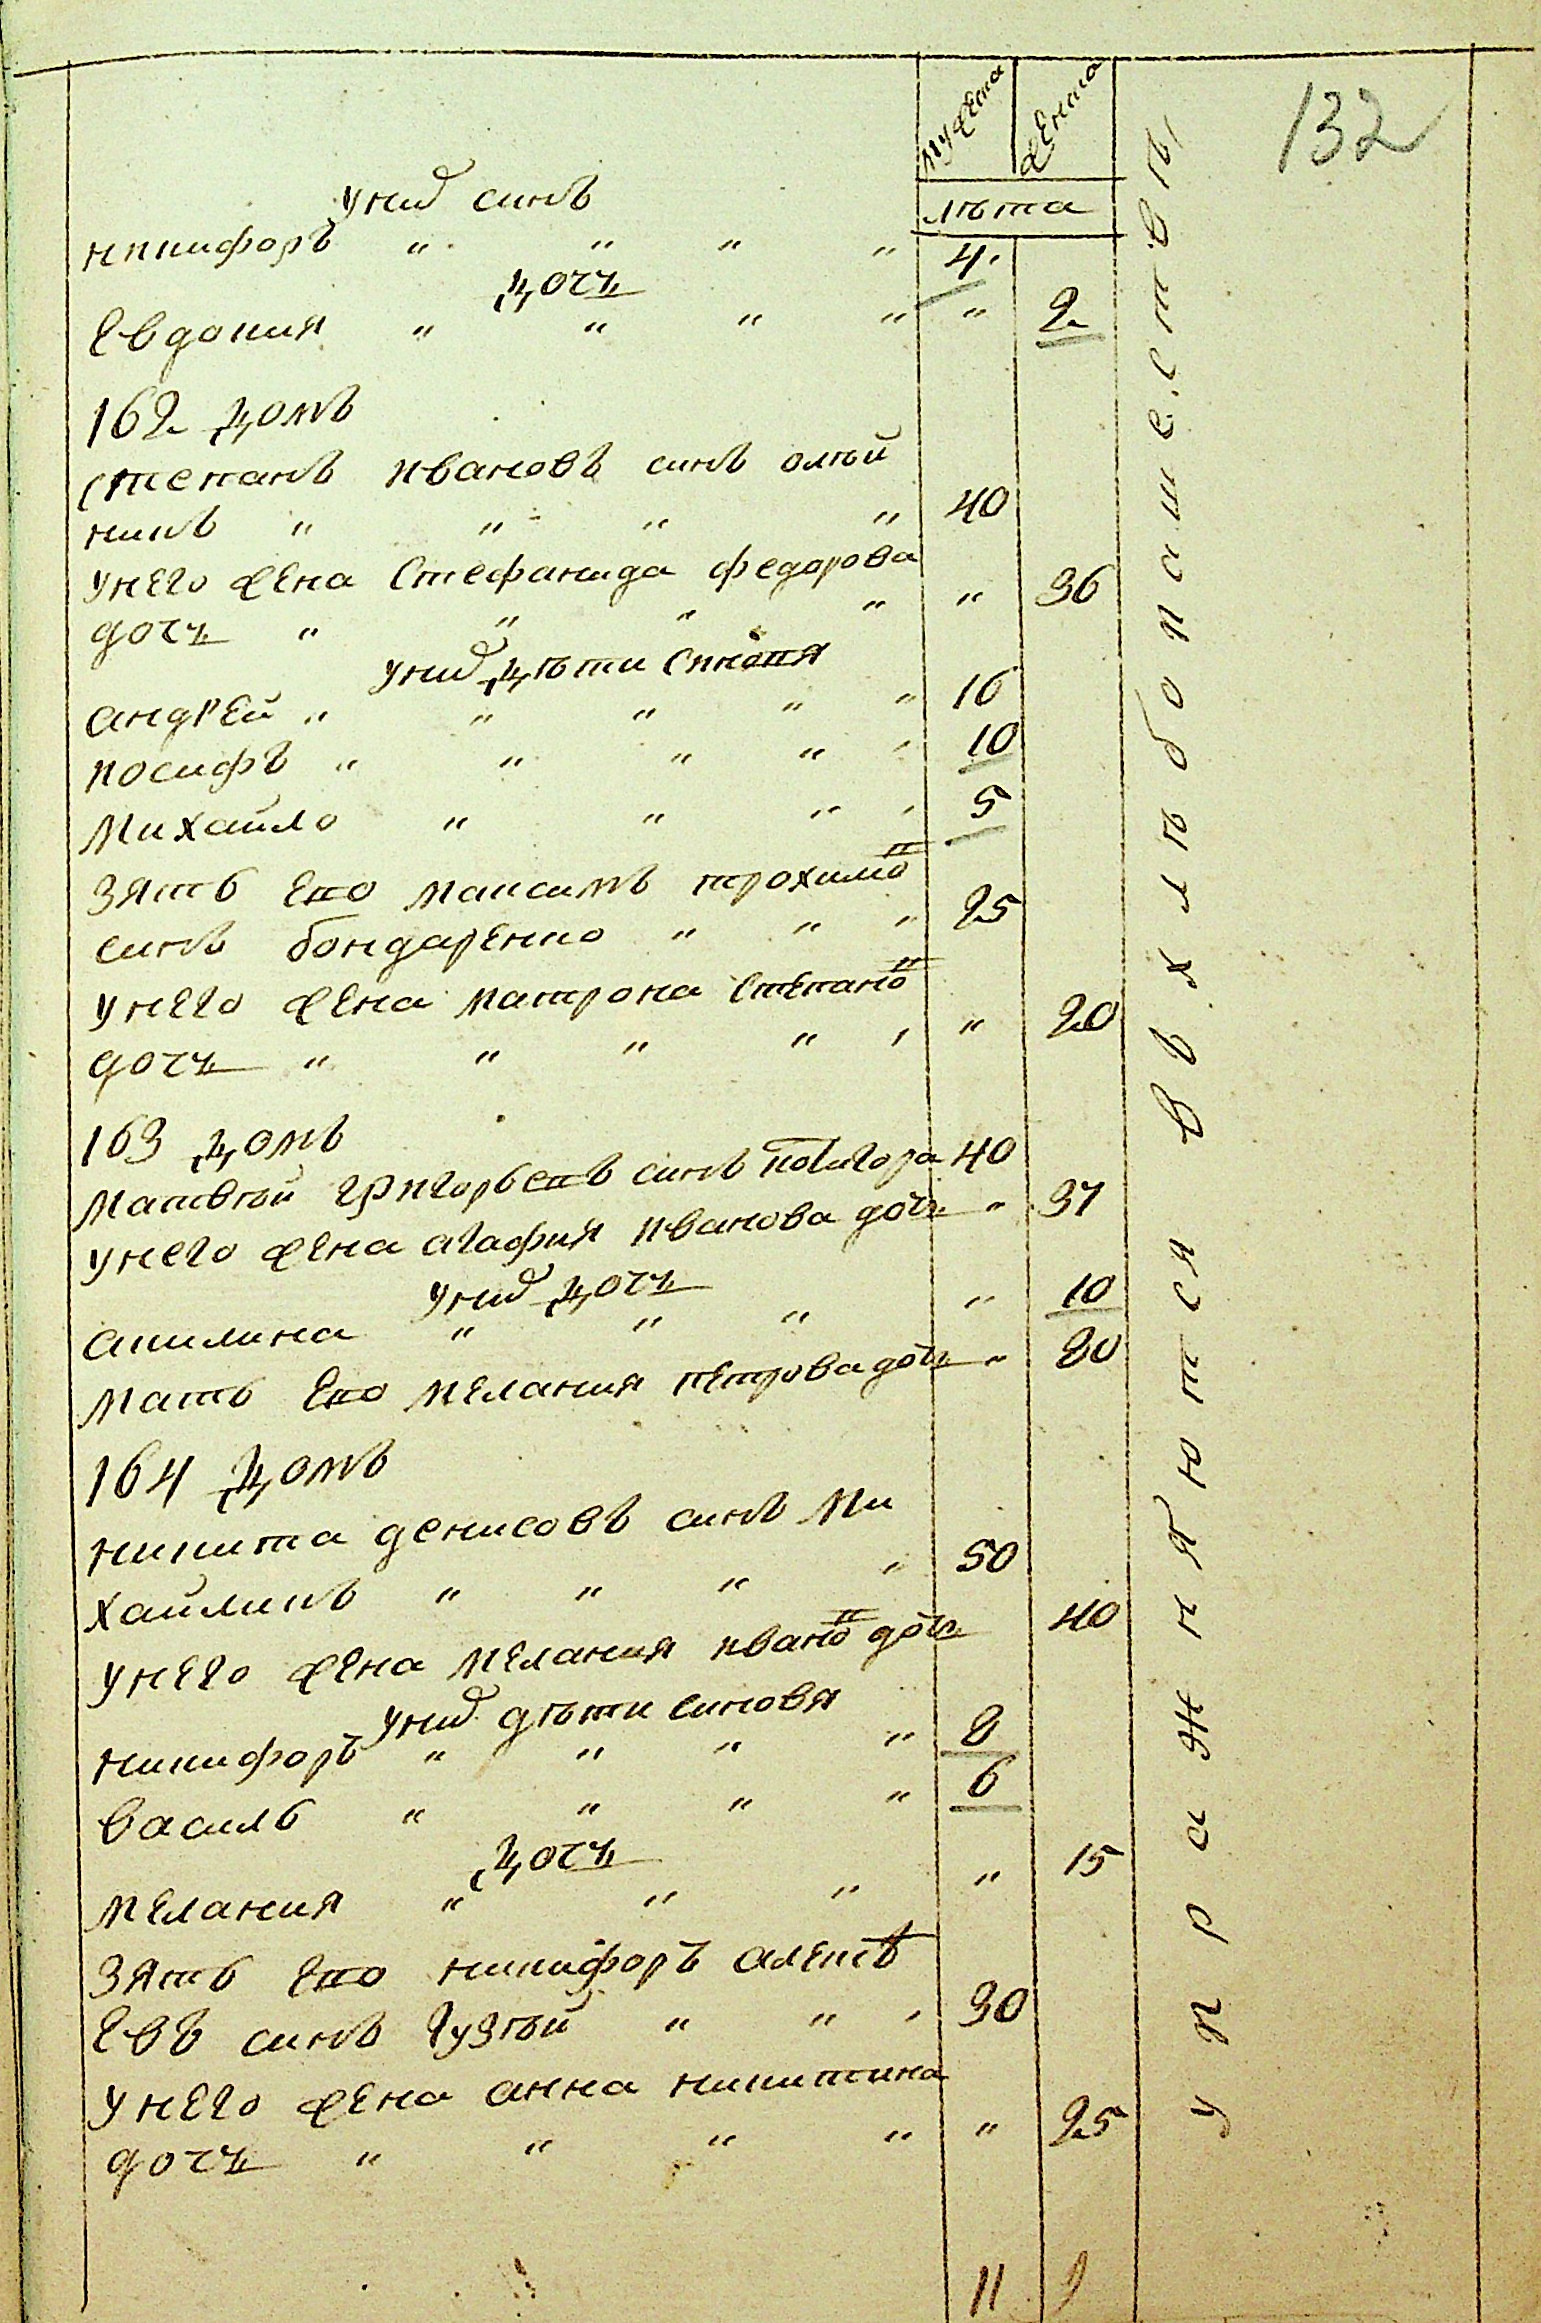 132
мужеска женска
лѣта
у них синъ
никифоръ " " " " 4.
дочь
Евдокия " " " " " 2
162 домъ
степанъ Ивановъ синъ олѣй
никъ " " " " 40
у него жена Стефанида федорова
дочь " " " " " 36
у них дѣти синовя
андрей " " " " " 16
иосифъ " " " " " 10
Михайло " " " " 5
Зять его максимъ трохимо
синъ бондаренко " " " 25
у него жена матрона степано
дочь " " " " " " 20
163 домъ
Матвѣй григорьевъ синъ 40
у него жена агафия Иванова дочь " 37
у них дочь
акилина " " " " 10
Мать его мелания петрова дочь " 80
164 домъ
никита денисовъ синъ Ми
хайликъ " " " " 50
у него жена мелания ивано дочь 40
у них дѣти синовя
никифоръ " " " " 8
василь " " " " 6
дочь
мелания " " " " 15
Зять его никифоръ алексѣ
евъ синъ гузѣй " " " 30
у него жена анна никитина
дочь " " " " " 25
11 9
упражняются в хлѣбопашествѣ